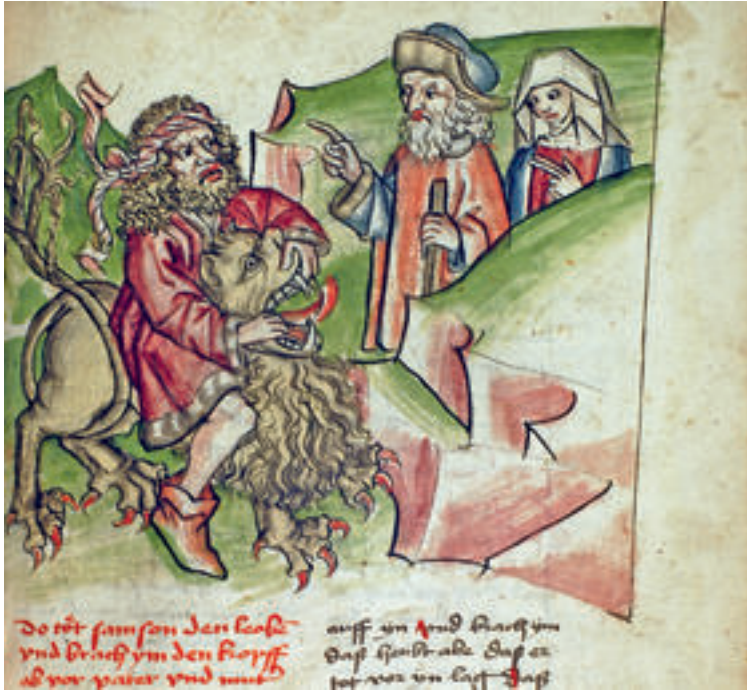 do töt samson den leoben
vnd brach ym den kopff
ab vor vater vnd mut
auff yn vnd brach ym
daß heubt abe daß er
tot vor yn lag Daß